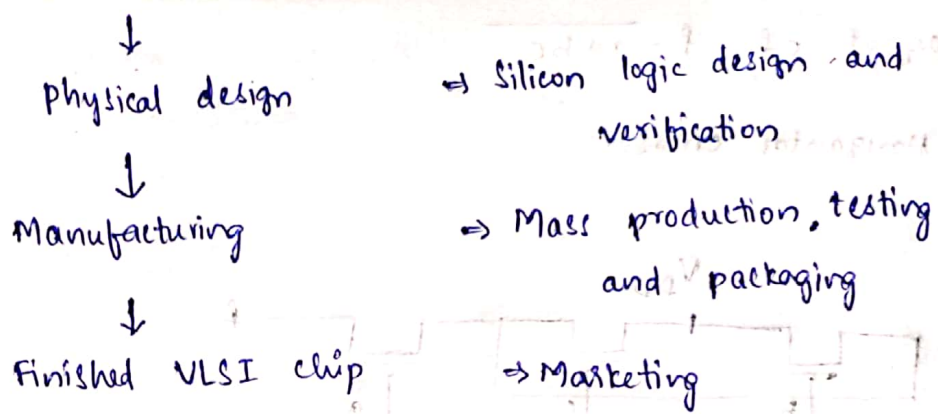 ↓
Physical design ⇒ Silicon logic design and
verification
↓
Manufacturing ⇒ Mass production, testing
and packaging
↓
Finished VLSI chip ⇒ Marketing